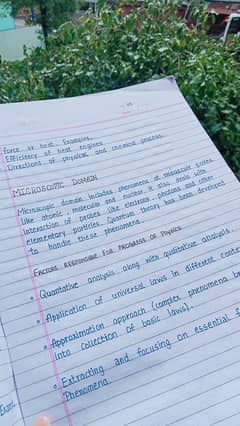 Force or heat Examples.
Efficiency of heat engines
Directions of physical and chemical process.
MICROSCOPIC DOMAIN
Microscopic domain includes phenomena at minuscule scales
like atomic, molecular and nuclear. It also deals with
interaction of probes like electrons, photons and other
elementary particles. Quantum theory has been developed
to handle these phenomena.
FACTORS RESPONSIBLE FOR PROGRESS OF PHYSICS
• Quantative analysis along with qualitative analysis.
• Application of universal laws in different conte
• Approximation approach (complex phenomena br
into collection of basic laws).
• Extracting and focusing on essential f
Phenomena.